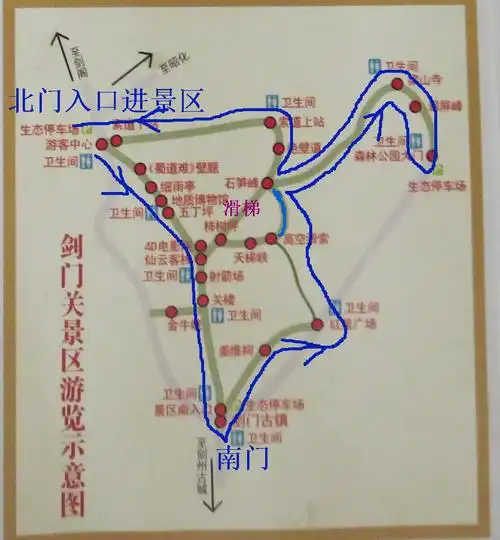 至剑阁
至昭化
北门入口进景区
卫生间
卫生间
梁山寺
生态停车场
索道下站
索道上站
翠屏峰
游客中心
绝壁道
卫生间
卫生间
《蜀道难》壁题
森林公园大门
细雨亭
石笋峰
生态停车场
地质博物馆
滑梯
卫生间
五丁坪
柿树坪
高空滑索
4D电影院
天梯峡
仙云客栈
卫生间
射箭场
关楼
卫生间
卫生间
广场
姜维祠
剑门关景区游览示意图
卫生间
景区南入口
生态停车场
剑门古镇
卫生间
南门
至剑州古城